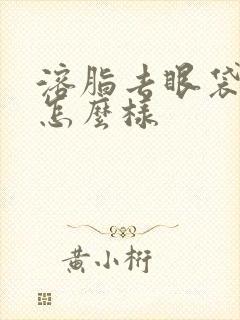 溶脂去眼袋
怎麼樣
黃小桁